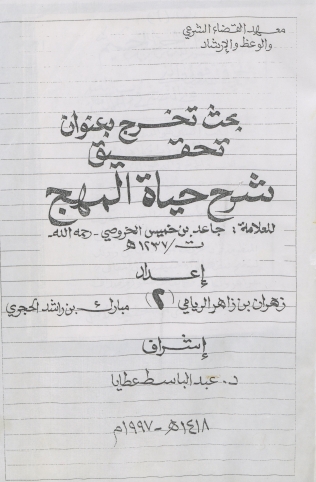 معهد القضاء الشرعي
والوعظ والإرشاد
بحث تخرج بعنوان
تحقيق
شرح حياة المهج
للعلامة: جاعد بن خميس الخروصي - رحمه الله -
ت/١٢٣٧هـ
إعداد
زهران بن زاهر الريامي (٢) مبارك بن راشد الحجري
إشراق
د. عبد الباسط عطايا
١٤١٨هـ - ١٩٩٧م